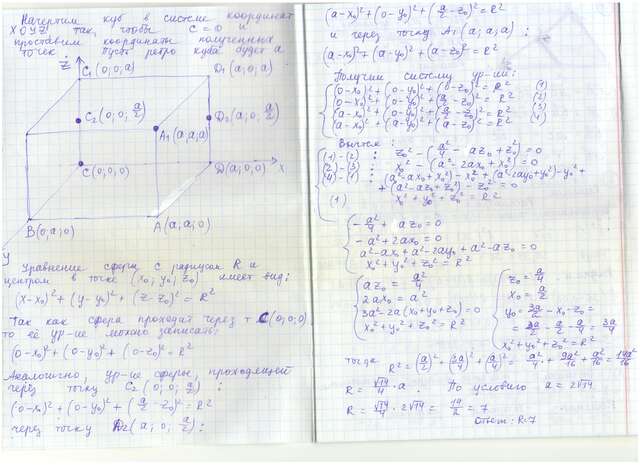 Начертим куб в системе координат
XOYZ так, чтобы C = 0 и
проставим координаты полученных
точек. Пусть ребро куба будет a
Z
C₁(0;0;a)
D₁(a;0;a)
C₂(0;0;a/2)
A₁(a;a;a)
D₂(a;0;a/2)
C(0;0;0)
D(a;0;0)
X
B(0;a;0)
A(a;a;0)
Y
Уравнение сферы с радиусом R и
центром в точке (x₀; y₀; z₀) имеет вид:
(x-x₀)² + (y-y₀)² + (z-z₀)² = R²
Так как сфера проходит через т C(0;0;0)
то её ур-ие можно записать:
(0-x₀)² + (0-y₀)² + (0-z₀)² = R²
Аналогично, ур-ие сферы, проходящей
через точку C₂(0;0;a/2):
(0-x₀)² + (0-y₀)² + (a/2-z₀)² = R²
через точку D₂(a;0;a/2):
(a-x₀)² + (0-y₀)² + (a/2-z₀)² = R²
и через точку A₁(a;a;a):
(a-x₀)² + (a-y₀)² + (a-z₀)² = R²
Получим систему ур-ий:
(0-x₀)² + (0-y₀)² + (0-z₀)² = R² (1)
(0-x₀)² + (0-y₀)² + (a/2-z₀)² = R² (2)
(a-x₀)² + (0-y₀)² + (a/2-z₀)² = R² (3)
(a-x₀)² + (a-y₀)² + (a-z₀)² = R² (4)
Вычтем:
(1)-(2) : z₀² - (a²/4 - az₀ + z₀²) = 0
(2)-(3) : x₀² - (a² - 2ax₀ + x₀²) = 0
(4)-(1) : (a² - ax₀ + x₀²) - x₀² + (a² - 2ay₀ + y₀²) - y₀² +
+ (a² - az₀ + z₀²) - z₀² = 0
(1) x₀² + y₀² + z₀² = R²
-a²/4 + az₀ = 0
-a² + 2ax₀ = 0
a² - ax₀ + a² - 2ay₀ + a² - az₀ = 0
x₀² + y₀² + z₀² = R²
az₀ = a²/4
2ax₀ = a²
3a² - 2a(x₀ + y₀ + z₀) = 0
x₀² + y₀² + z₀² = R²
z₀ = a/4
x₀ = a/2
y₀ = 3a/2 - x₀ - z₀ =
= 3a/2 - a/2 - a/4 = 3a/4
x₀² + y₀² + z₀² = R²
тогда
R² = (a/2)² + (3a/4)² + (a/4)² = a²/4 + 9a²/16 + a²/16 = 14a²/16
R = √14/4 · a. По условию a = 2√14
R = √14/4 · 2√14 = 14/2 = 7
Ответ: R=7